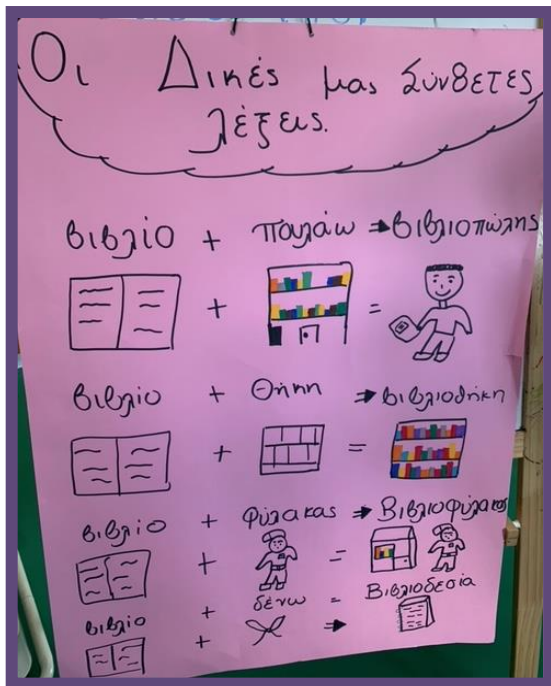 Οι Δικές μας Σύνθετες
λέξεις.
βιβλίο + πουλάω ⇒ βιβλιοπώλης
+ =
βιβλίο + Θήκη ⇒ βιβλιοθήκη
+ =
βιβλίο + φύλακας ⇒ Βιβλιοφύλακας
+ =
βιβλίο + δένω = Βιβλιοδεσία
+ ⇒